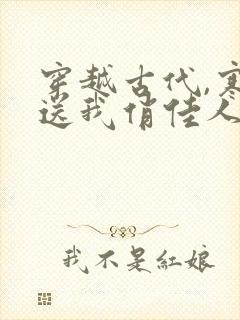 穿越古代,寒
送我俏佳人
我不是紅娘